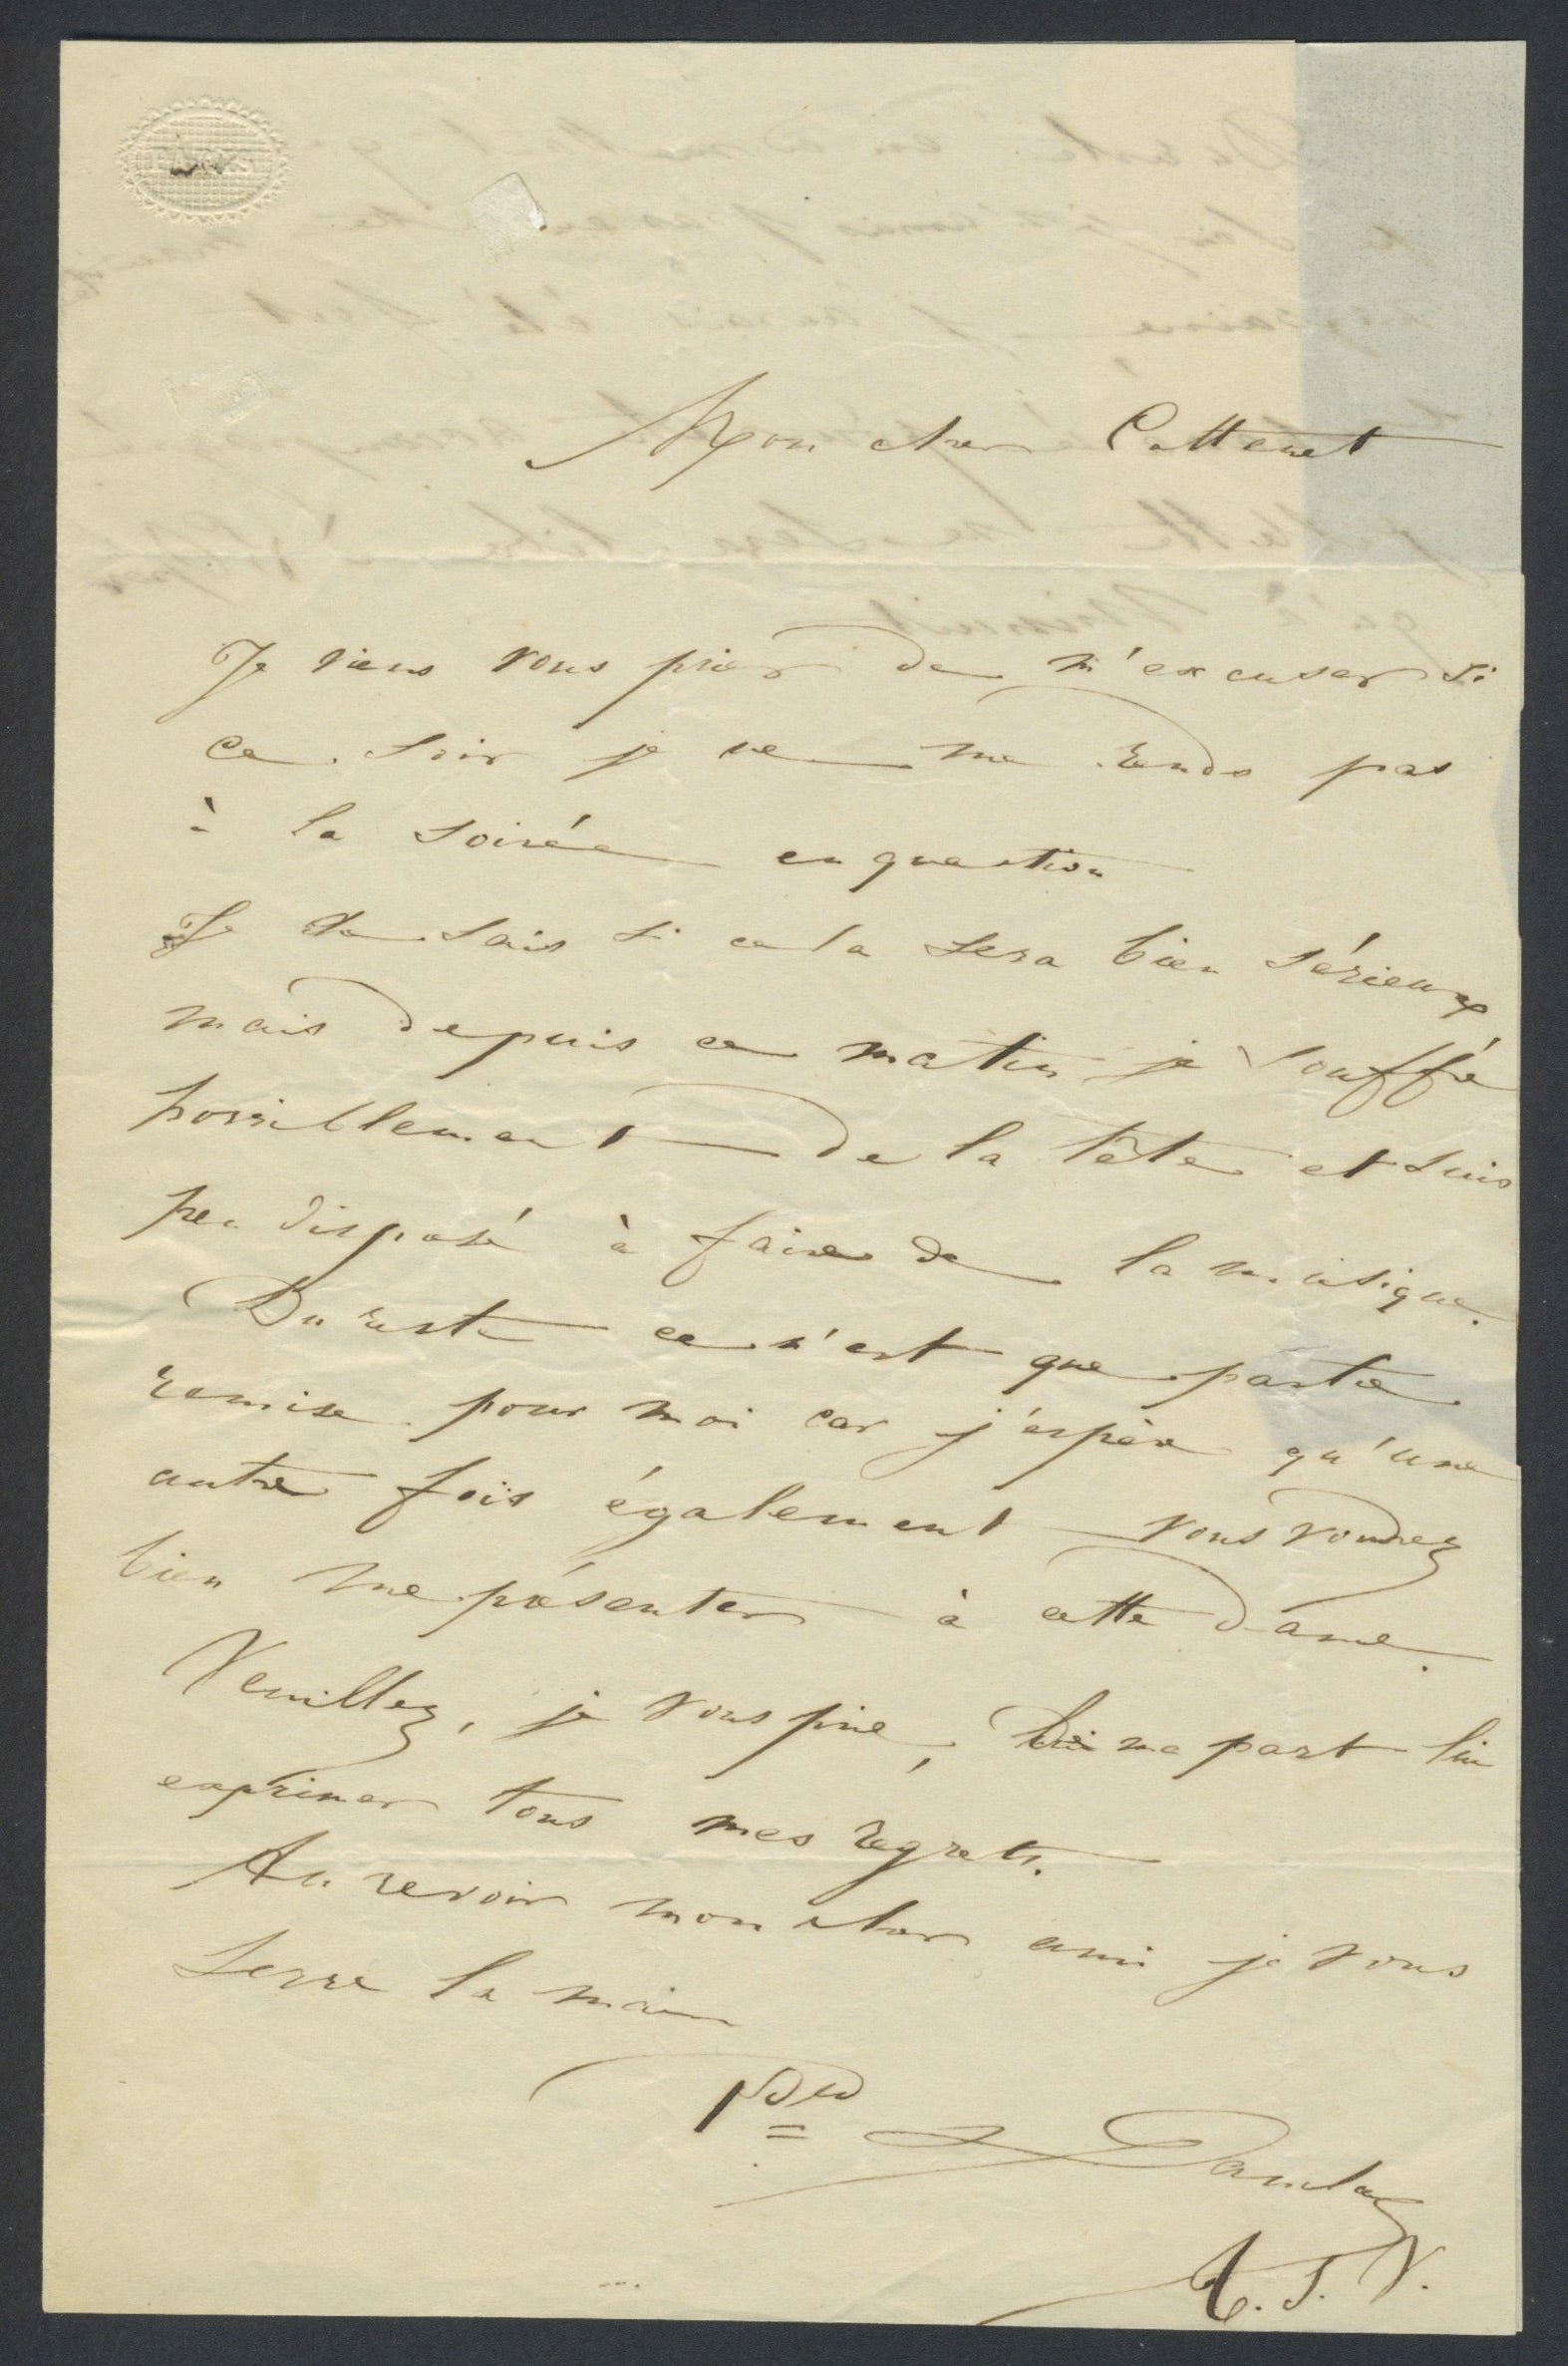 PARIS
Mon cher Cottenet
Je viens vous prier de m'excuser si
ce soir je ne me rends pas
à la soirée en question
Je ne sais si cela sera bien sérieux
mais depuis ce matin je souffre
horriblement de la tête et suis
peu disposé à faire de la musique.
Du reste ce n'est que partie
remise pour moi car j'espère qu'une
autre fois également vous voudrez
bien me présenter à cette dame.
Veuillez, je vous prie, de ma part lui
exprimer tous mes regrets.
Au revoir mon cher ami je vous
serre la main
T. S. V.